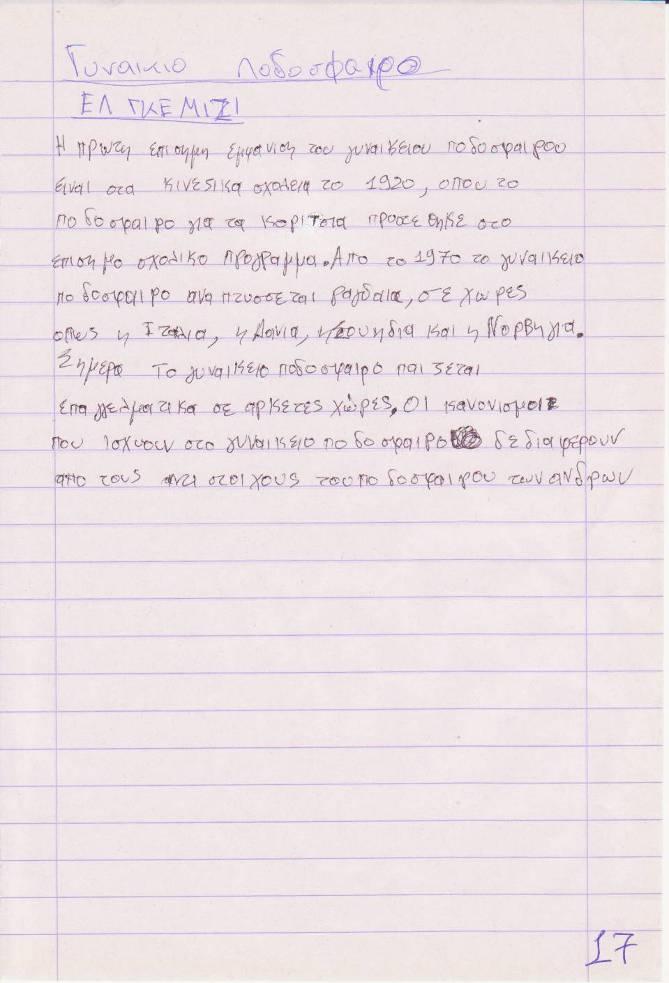 Γυναικιο ποδοσφαιρο
ΕΛ ΓΚΕΜΙΖΙ
Η πρωτη επισημη εμφανιση του γυναικειου ποδοσφαιρου
ειναι στα κινεσικα σχολεια το 1920, οπου το
ποδοσφαιρο για τα κοριτσια προστεθηκε στο
επισημο σχολικο προγραμμα. Απο το 1970 το γυναικειο
ποδοσφαιρο αναπτυσσεται ραγδαια, σε χωρες
οπως η Ιταλια, η Δανια, η Σουηδια και η Νορβηγια.
Σημερα το γυναικειο ποδοσφαιρο παιζεται
επαγγελματικα σε αρκετες χώρες. Οι κανονισμοι
που ισχυουν στο γυναικειο ποδοσφαιρο δε διαφερουν
απο τους αντιστοιχους του ποδοσφαιρου των ανδρων
17